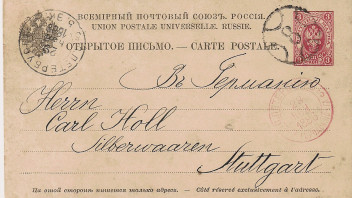 ВСЕМІРНЫЙ ПОЧТОВЫЙ СОЮЗЪ. РОССІЯ.
UNION POSTALE UNIVERSELLE. RUSSIE.
ОТКРЫТОЕ ПИСЬМО. — CARTE POSTALE.
3 3
3 3
Въ Германію
Herrn
Carl Holl
Silberwaaren
Stuttgart
На этой сторонѣ пишется только адресъ. — Côté réservé exclusivement à l'adresse.